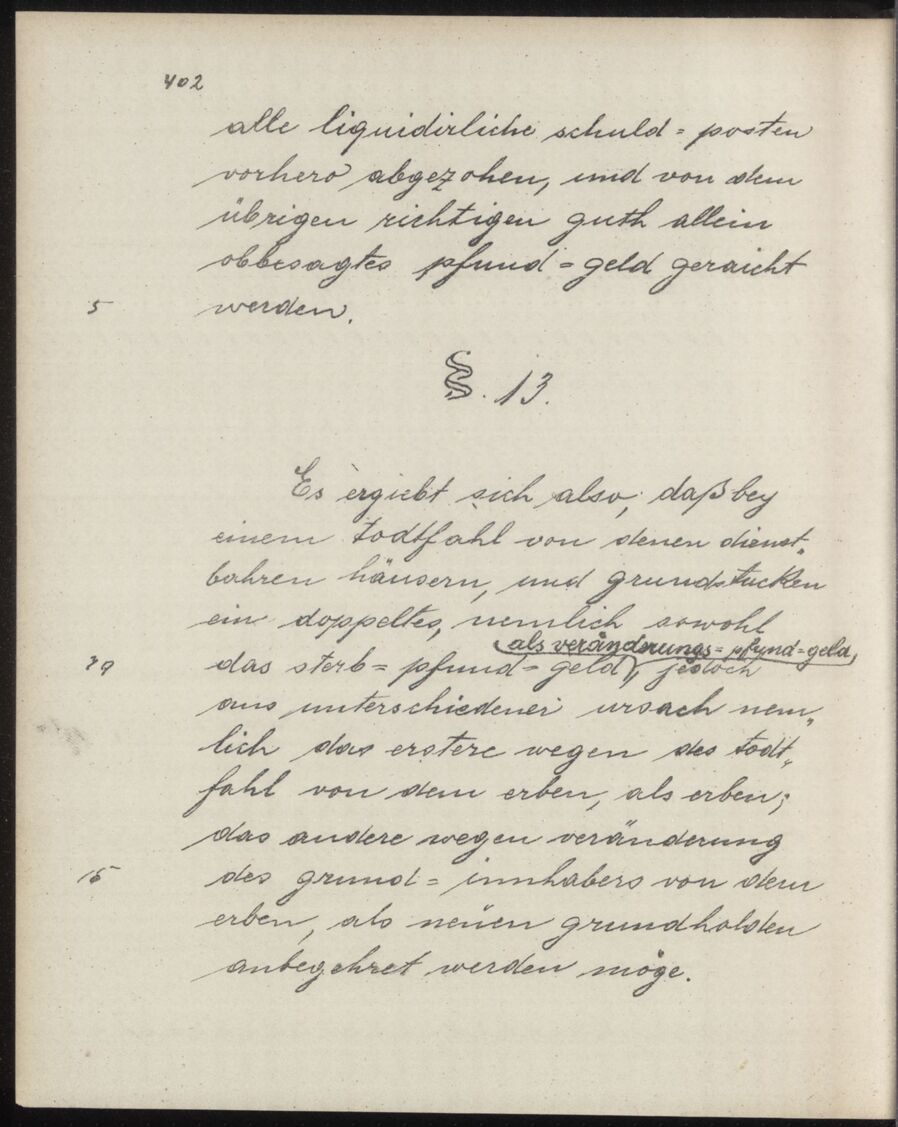 402
alle liquidirliche schuld = posten
vorhero abgezohen, und von dem
übrigen richtigen guth allein
obbesagtes pfund = geld geraicht
5 werden.
§. 13.
Es ergiebt sich also, daß bey
einem todtfahl von denen dienst„
bahren häusern, und grund=stucken
ein doppeltes, nemlich sowohl
als veränderungs = pfund = geld,
das sterb = pfund = geld, jedoch
aus unterschiedener ursach nem„
lich das erstere wegen des todt„
fahl von dem erben, als erben;
das andere wegen veränderung
15 des grund = innhabers von dem
erben, als neüen grundholden
anbegehret werden möge.